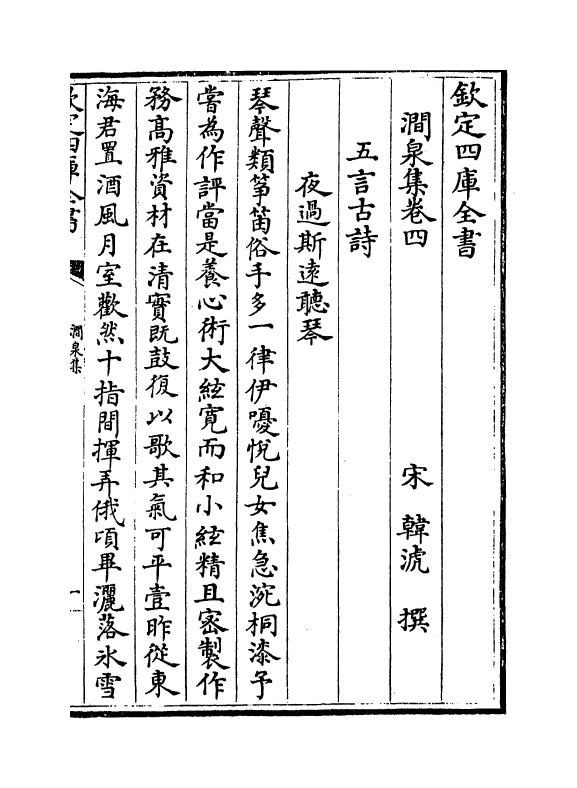 欽定四庫全書
澗泉集卷四
宋 韓淲 撰
五言古詩
夜過斯遠聽琴
琴聲類箏笛俗手多一律伊嚘悅兒女焦急涴桐漆予
嘗為作評當是養心術大絃寛而和小絃精且宻製作
務髙雅資材在清實既鼓復以歌其氣可平壹昨從東
海君置酒風月室歡然十指間揮弄俄頃畢灑落氷雪
欽定四庫全書
澗泉集
一